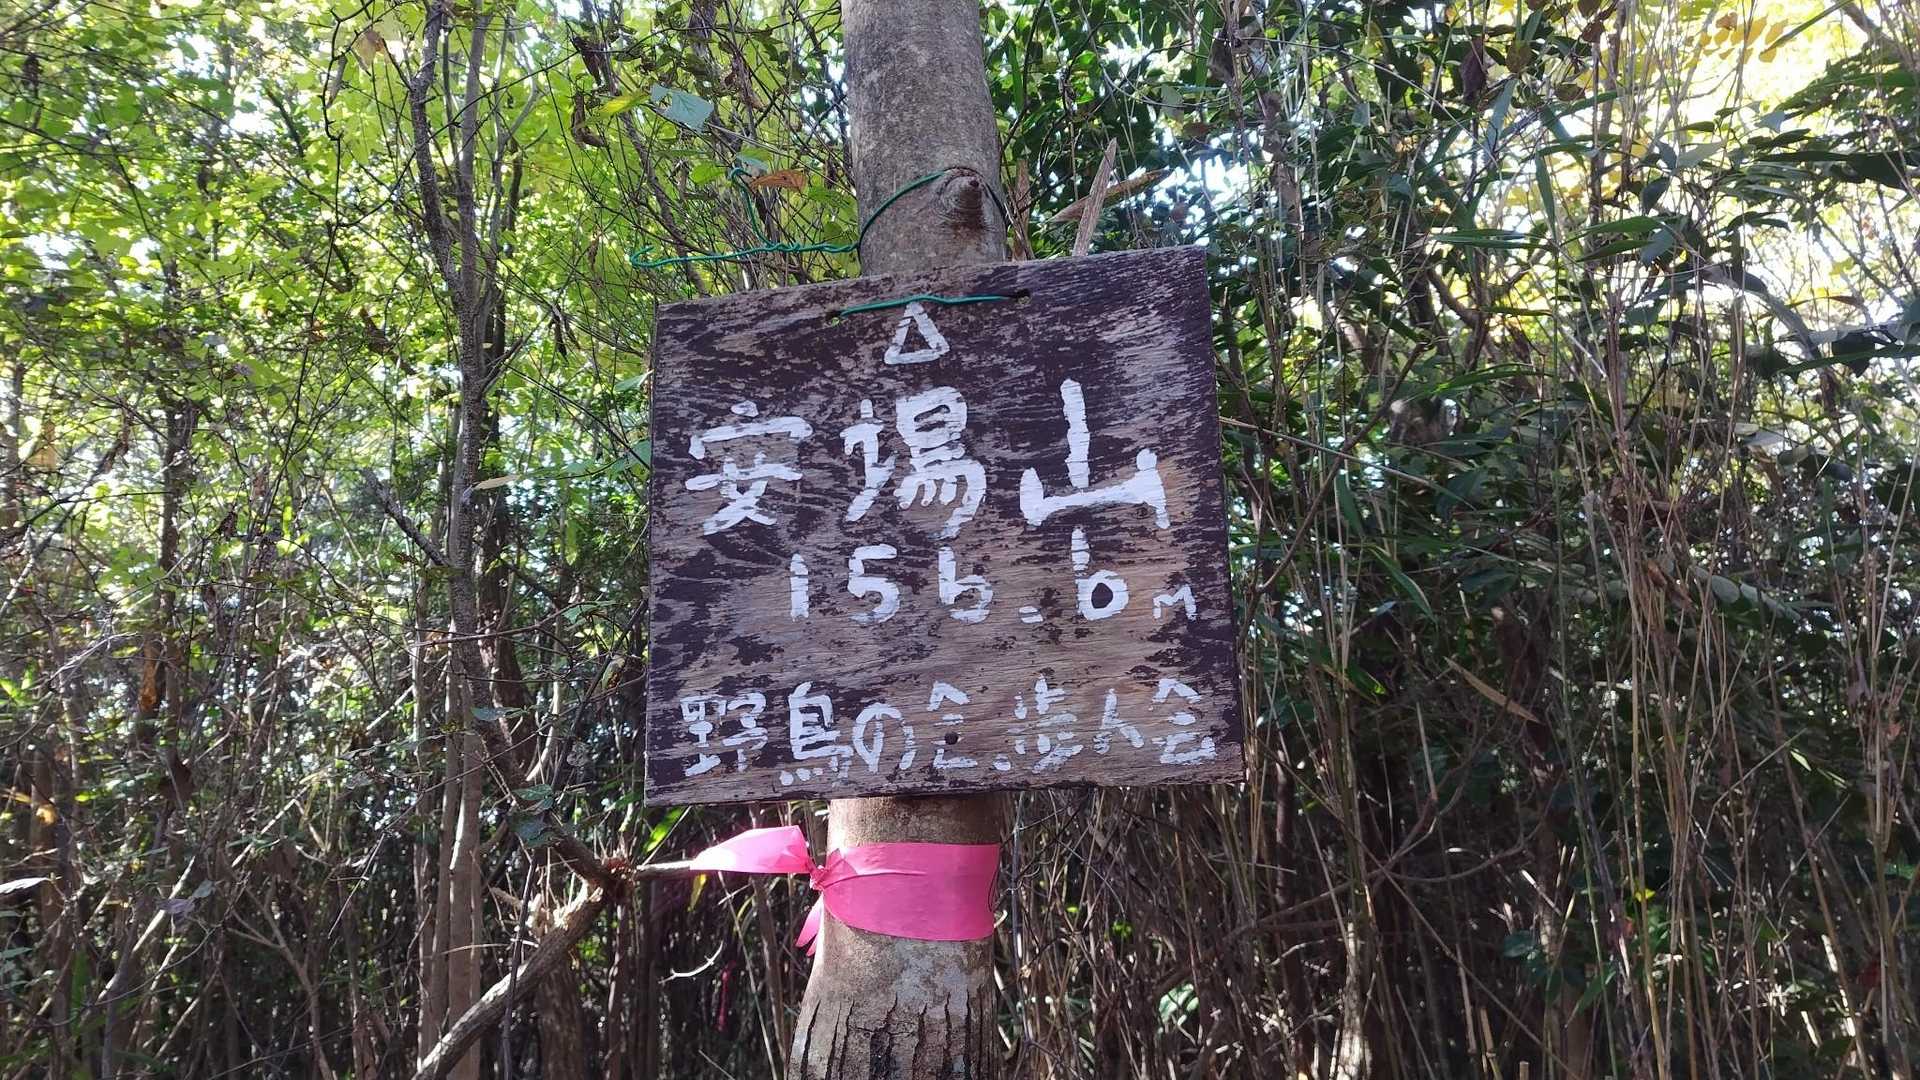 △
安場山
156.6m
野鳥の会.歩人会